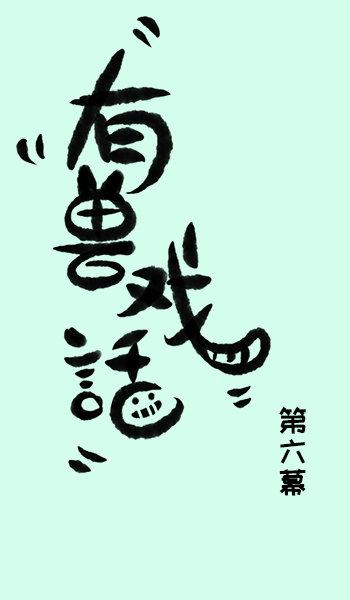 有兽戏話
第六幕